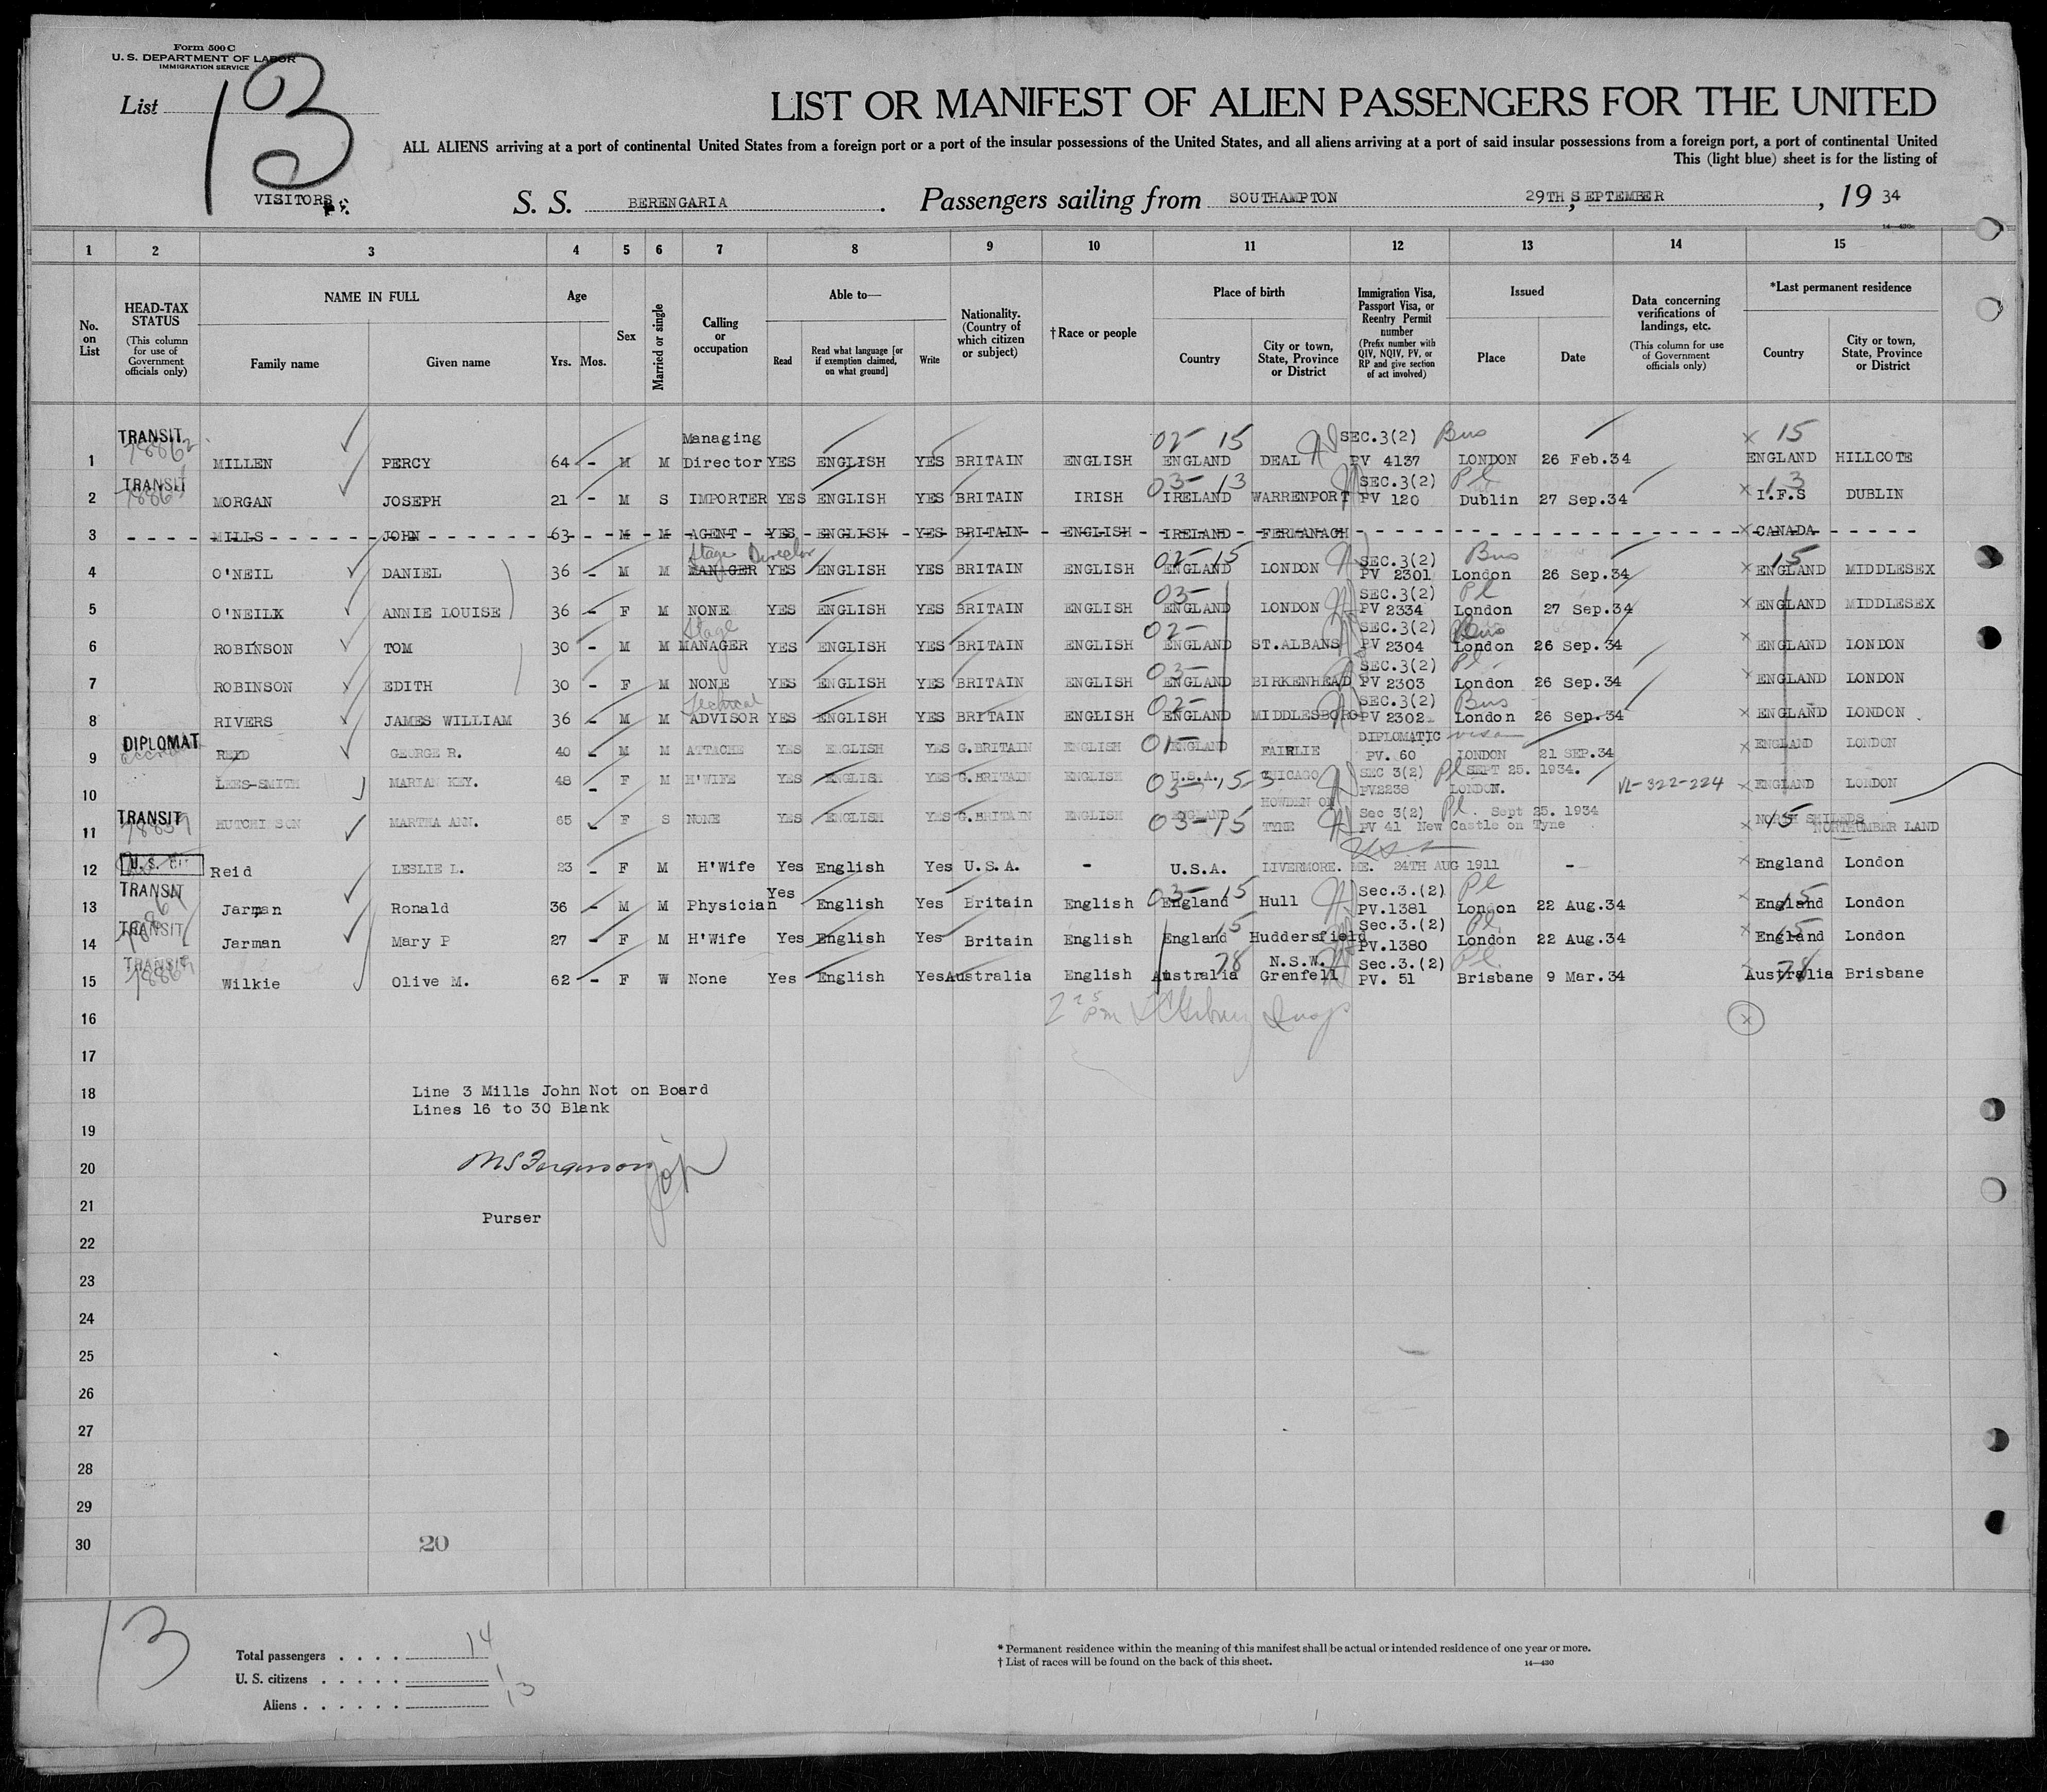 Form 500 C
U. S. DEPARTMENT OF LABOR
IMMIGRATION SERVICE
List 13
LIST OR MANIFEST OF ALIEN PASSENGERS FOR THE UNITED
ALL ALIENS arriving at a port of continental United States from a foreign port or a port of the insular possessions of the United States, and all aliens arriving at a port of said insular possessions from a foreign port, a port of continental United
This (light blue) sheet is for the listing of
VISITORS
S. S. BERENGARIA. Passengers sailing from SOUTHAMPTON 29TH SEPTEMBER, 19 34
14—430
1 2 3 4 5 6 7 8 9 10 11 12 13 14 15
No. on List
HEAD-TAX STATUS (This column for use of Government officials only)
NAME IN FULL
Family name
Given name
Age
Yrs. Mos.
Sex
Married or single
Calling or occupation
Able to—
Read
Read what language [or if exemption claimed, on what ground]
Write
Nationality. (Country of which citizen or subject)
†Race or people
Place of birth
Country
City or town, State, Province or District
Immigration Visa, Passport Visa, or Reentry Permit number (Prefix number with QIV, NQIV, PV, or RP and give section of act involved)
Issued
Place
Date
Data concerning verifications of landings, etc. (This column for use of Government officials only)
*Last permanent residence
Country
City or town, State, Province or District
TRANSIT 78862 Managing 02- 15 SEC.3(2) Bus x 15
1 MILLEN PERCY 64 - M M Director YES ENGLISH YES BRITAIN ENGLISH ENGLAND DEAL PV 4137 LONDON 26 Feb.34 ENGLAND HILLCOTE
TRANSIT 03- 13 SEC.3(2) Pl 13
2 MORGAN JOSEPH 21 - M S IMPORTER YES ENGLISH YES BRITAIN IRISH IRELAND WARRENPORT PV 120 Dublin 27 Sep.34 x I.F.S DUBLIN
3 MILLS JOHN 63 - M M AGENT YES ENGLISH YES BRITAIN ENGLISH IRELAND FERMANAGH x CANADA
Stage Director 02-15 SEC.3(2) Bus 15
4 O'NEIL DANIEL 36 - M M MANAGER YES ENGLISH YES BRITAIN ENGLISH ENGLAND LONDON PV 2301 London 26 Sep.34 x ENGLAND MIDDLESEX
03- SEC.3(2) Pl
5 O'NEILX ANNIE LOUISE 36 - F M NONE YES ENGLISH YES BRITAIN ENGLISH ENGLAND LONDON PV 2334 London 27 Sep.34 x ENGLAND MIDDLESEX
Stage 02- SEC.3(2) Bus
6 ROBINSON TOM 30 - M M MANAGER YES ENGLISH YES BRITAIN ENGLISH ENGLAND ST.ALBANS PV 2304 London 26 Sep.34 x ENGLAND LONDON
03- SEC.3(2) Pl
7 ROBINSON EDITH 30 - F M NONE YES ENGLISH YES BRITAIN ENGLISH ENGLAND BIRKENHEAD PV 2303 London 26 Sep.34 x ENGLAND LONDON
Technical 02- SEC.3(2) Bus
8 RIVERS JAMES WILLIAM 36 - M M ADVISOR YES ENGLISH YES BRITAIN ENGLISH ENGLAND MIDDLESBORO PV 2302 London 26 Sep.34 x ENGLAND LONDON
DIPLOMAT 01- DIPLOMATIC visa
9 REID GEORGE R. 40 - M M ATTACHE YES ENGLISH YES G.BRITAIN ENGLISH ENGLAND FAIRLIE PV. 60 LONDON 21 SEP.34 x ENGLAND LONDON
10 LEES-SMITH MARIAN KEY. 48 - F M H'WIFE YES ENGLISH YES G.BRITAIN ENGLISH U.S.A. CHICAGO SEC 3(2) Pl SEPT 25. 1934. PV2238 LONDON. VL-322-224 x ENGLAND LONDON
03-
TRANSIT 78859
11 HUTCHINSON MARTHA ANN. 65 - F S NONE YES ENGLISH YES G.BRITAIN ENGLISH ENGLAND HOWDEN ON TYNE Sec 3(2) Pl. Sept 25. 1934 PV 41 New Castle on Tyne x NORTH SHIELDS NORTHUMBER LAND
03-15 15
U.S. CIT USA
12 Reid LESLIE L. 23 - F M H'Wife Yes English Yes U.S.A. - U.S.A. LIVERMORE. ME. 24TH AUG 1911 - x England London
TRANSIT Yes 03- 15 Sec.3.(2) Pl 15
13 Jarman Ronald 36 - M M Physician English Yes Britain English England Hull PV.1381 London 22 Aug.34 England London
TRANSIT 15 Sec.3.(2) Pl. 15
14 Jarman Mary P 27 - F M H'Wife Yes English Yes Britain English England Huddersfield PV.1380 London 22 Aug.34 x England London
TRANSIT 78 N.S.W. Sec.3.(2) Pl. 78
15 Wilkie Olive M. 62 - F W None Yes English Yes Australia English Australia Grenfell PV. 51 Brisbane 9 Mar.34 Australia Brisbane
16 x
17
18 Line 3 Mills John Not on Board
Lines 16 to 30 Blank
19
20
21 Purser
22
23
24
25
26
27
28
29
30 20
13
Total passengers . . . . 14
U. S. citizens . . . . . 1
Aliens . . . . . . 13
* Permanent residence within the meaning of this manifest shall be actual or intended residence of one year or more.
† List of races will be found on the back of this sheet. 14—430